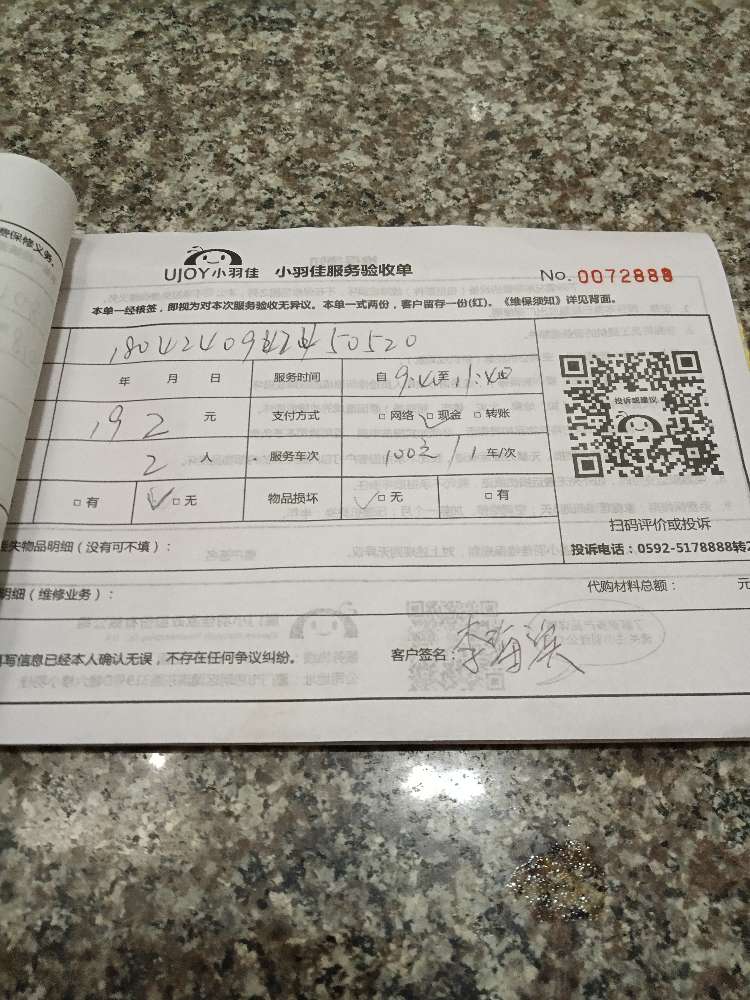 费保修义务。
UJOY小羽佳 小羽佳服务验收单 No. 0072888
本单一经核签，即视为对本次服务验收无异议。本单一式两份，客户留存一份(红)。《维保须知》详见背面。
年 月 日 服务时间 自 9:40 至 11:40
192 元 支付方式 □ 网络 □ 现金 □ 转账
投诉或建议
2 人 服务车次 1 车/次
□ 有 □ 无 物品损坏 □ 无 □ 有
扫码评价或投诉
失物品明细（没有可不填）： 投诉电话：0592-5178888转2
明细（维修业务）： 代购材料总额： 元
写信息已经本人确认无误，不存在任何争议纠纷。 客户签名：李海滨